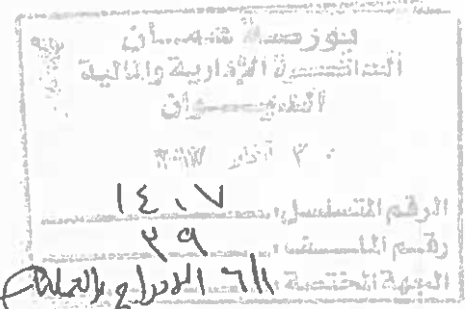 بورصة عمان
الدائرة الإدارية والمالية
الديوان
٣٠ آذار ٢٠١٧
الرقم المتسلسل: ١٤٠٧
رقم الملف: ٣٩
الجهة المختصة: الإدراج والعمليات